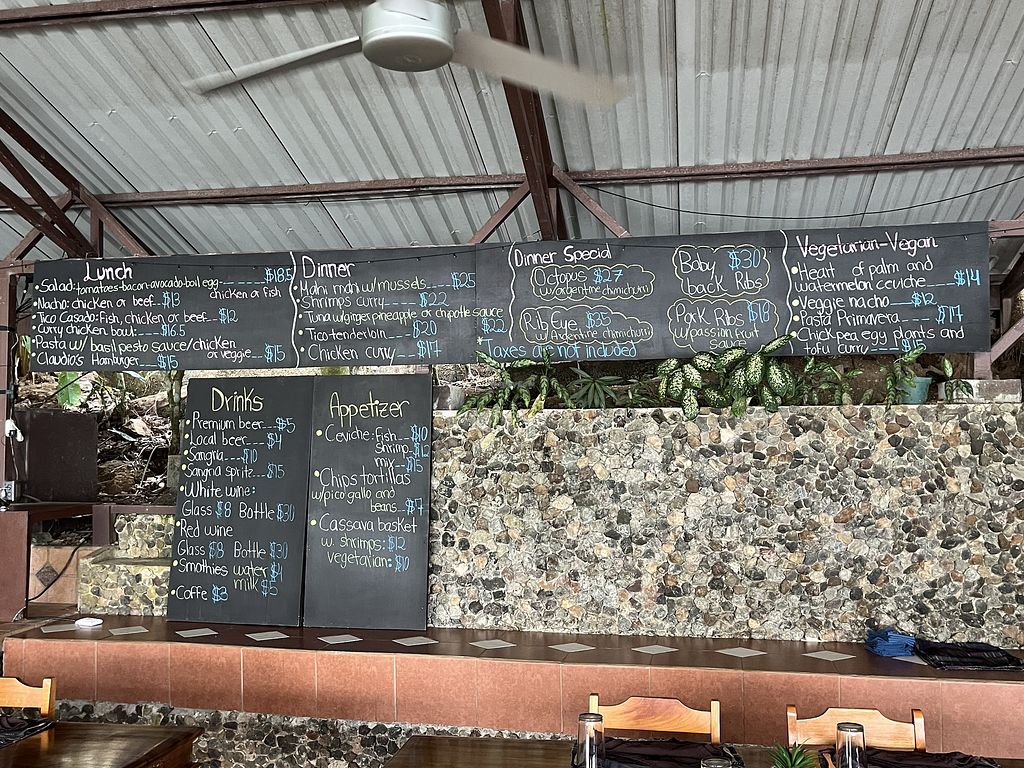 Lunch
• Salad: tomatoes-bacon-avocado-boil egg $18.5
chicken or fish
• Nacho: chicken or beef $13
• Tico Casado: Fish, chicken or beef $12
• Curry chicken bowl: $16.5
• Pasta w/ basil pesto sauce/chicken
or veggie $15
• Claudio's Hamburger $15
Dinner
• Mahi mahi w/mussels $25
• Shrimps curry $22
• Tuna w/ginger pineapple or chipotle sauce
$22
• Tico tenderloin $20
• Chicken curry $17
Dinner Special
Octopus $27
w/argentine chimichurri
Rib Eye $35
w/Argentine chimichurri
Baby $30
back Ribs
Pork Ribs $18
w/passion fruit
sauce
Taxes are not included
Vegetarian-Vegan
• Heart of palm and
watermelon ceviche $14
• Veggie nacho $12
• Pasta Primavera $14
• Chick-pea egg plants and
tofu curry $15
Drinks
• Premium beer $5
• Local beer $4
• Sangria $10
• Sangria spritz $15
• White wine:
Glass $8 Bottle $30
• Red wine
Glass $8 Bottle $30
• Smothies water $4
milk $5
• Coffe $3
Appetizer
• Ceviche: fish $10
shrimp $12
mix $15
• Chips tortillas
w/pico gallo and
beans $7
• Cassava basket
w. shrimps: $12
vegetarian: $10